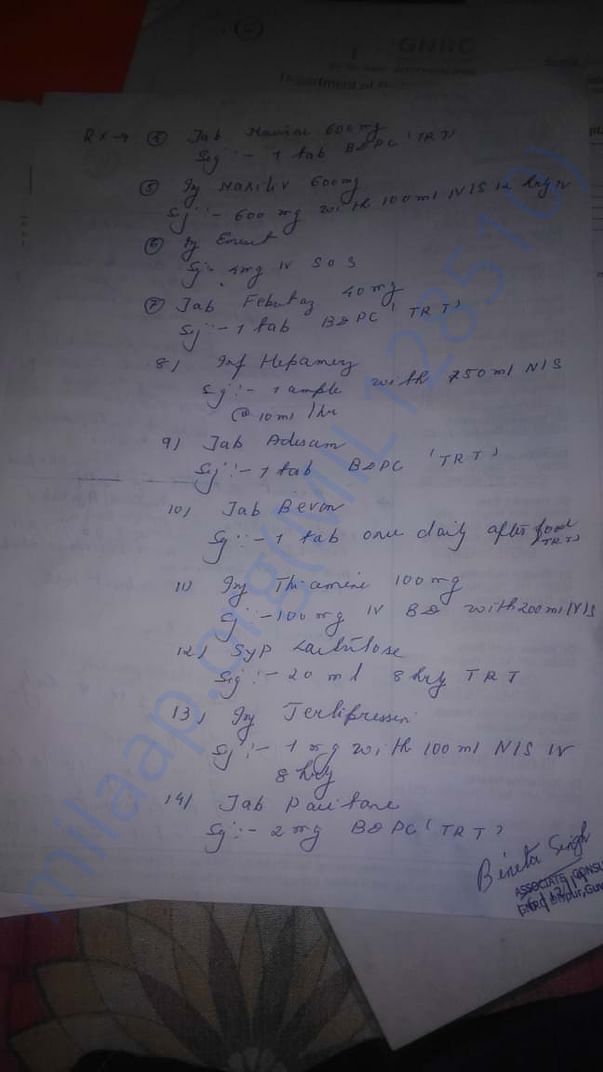 GNRC
Department of
Rx → ④ Tab 600mg
Sig :- 1 tab BDPC (TRT)
⑤ Inj Naxiliv 600mg
Sig :- 600 mg with 100ml N/S 12 hrly IV
⑥ Inj Emest
Sig :- 4mg IV SOS
⑦ Tab Febutaz 40mg
Sig :- 1 tab BDPC (TRT)
8) Inf Hepamerz
Sig :- 1 ample with 750ml N/S
@ 10ml /hr
9) Tab Adesam
Sig :- 1 tab BDPC (TRT)
10) Tab Bevon
Sig :- 1 tab once daily after food
(TRT)
11) Inj Thiamine 100mg
Sig :- 100mg IV BD with 200ml N/S
12) Syp Lactulose
Sig :- 20 ml 8 hrly TRT
13) Inj Terlipressin
Sig :- 1 mg with 100 ml N/S IV
8 hrly
14) Tab
Sig :- 2 mg BDPC (TRT)
Bineta Singh
ASSOCIATE CONSU
milaap.org(MIL128510)